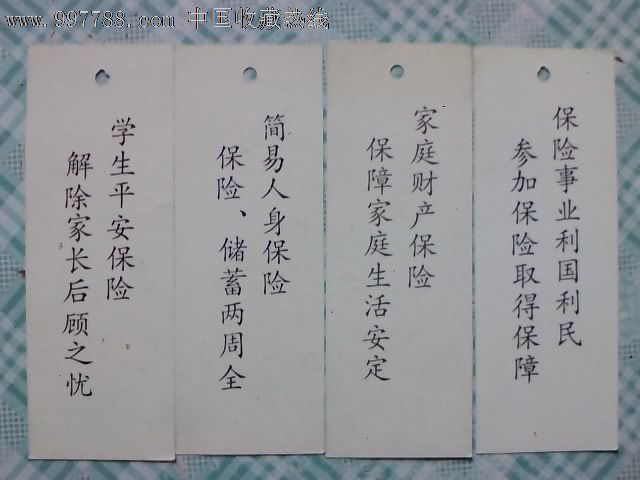 www.997788.com 中国收藏热线
保险事业利国利民
参加保险取得保障
家庭财产保险
保障家庭生活安定
简易人身保险
保险、储蓄两周全
学生平安保险
解除家长后顾之忧